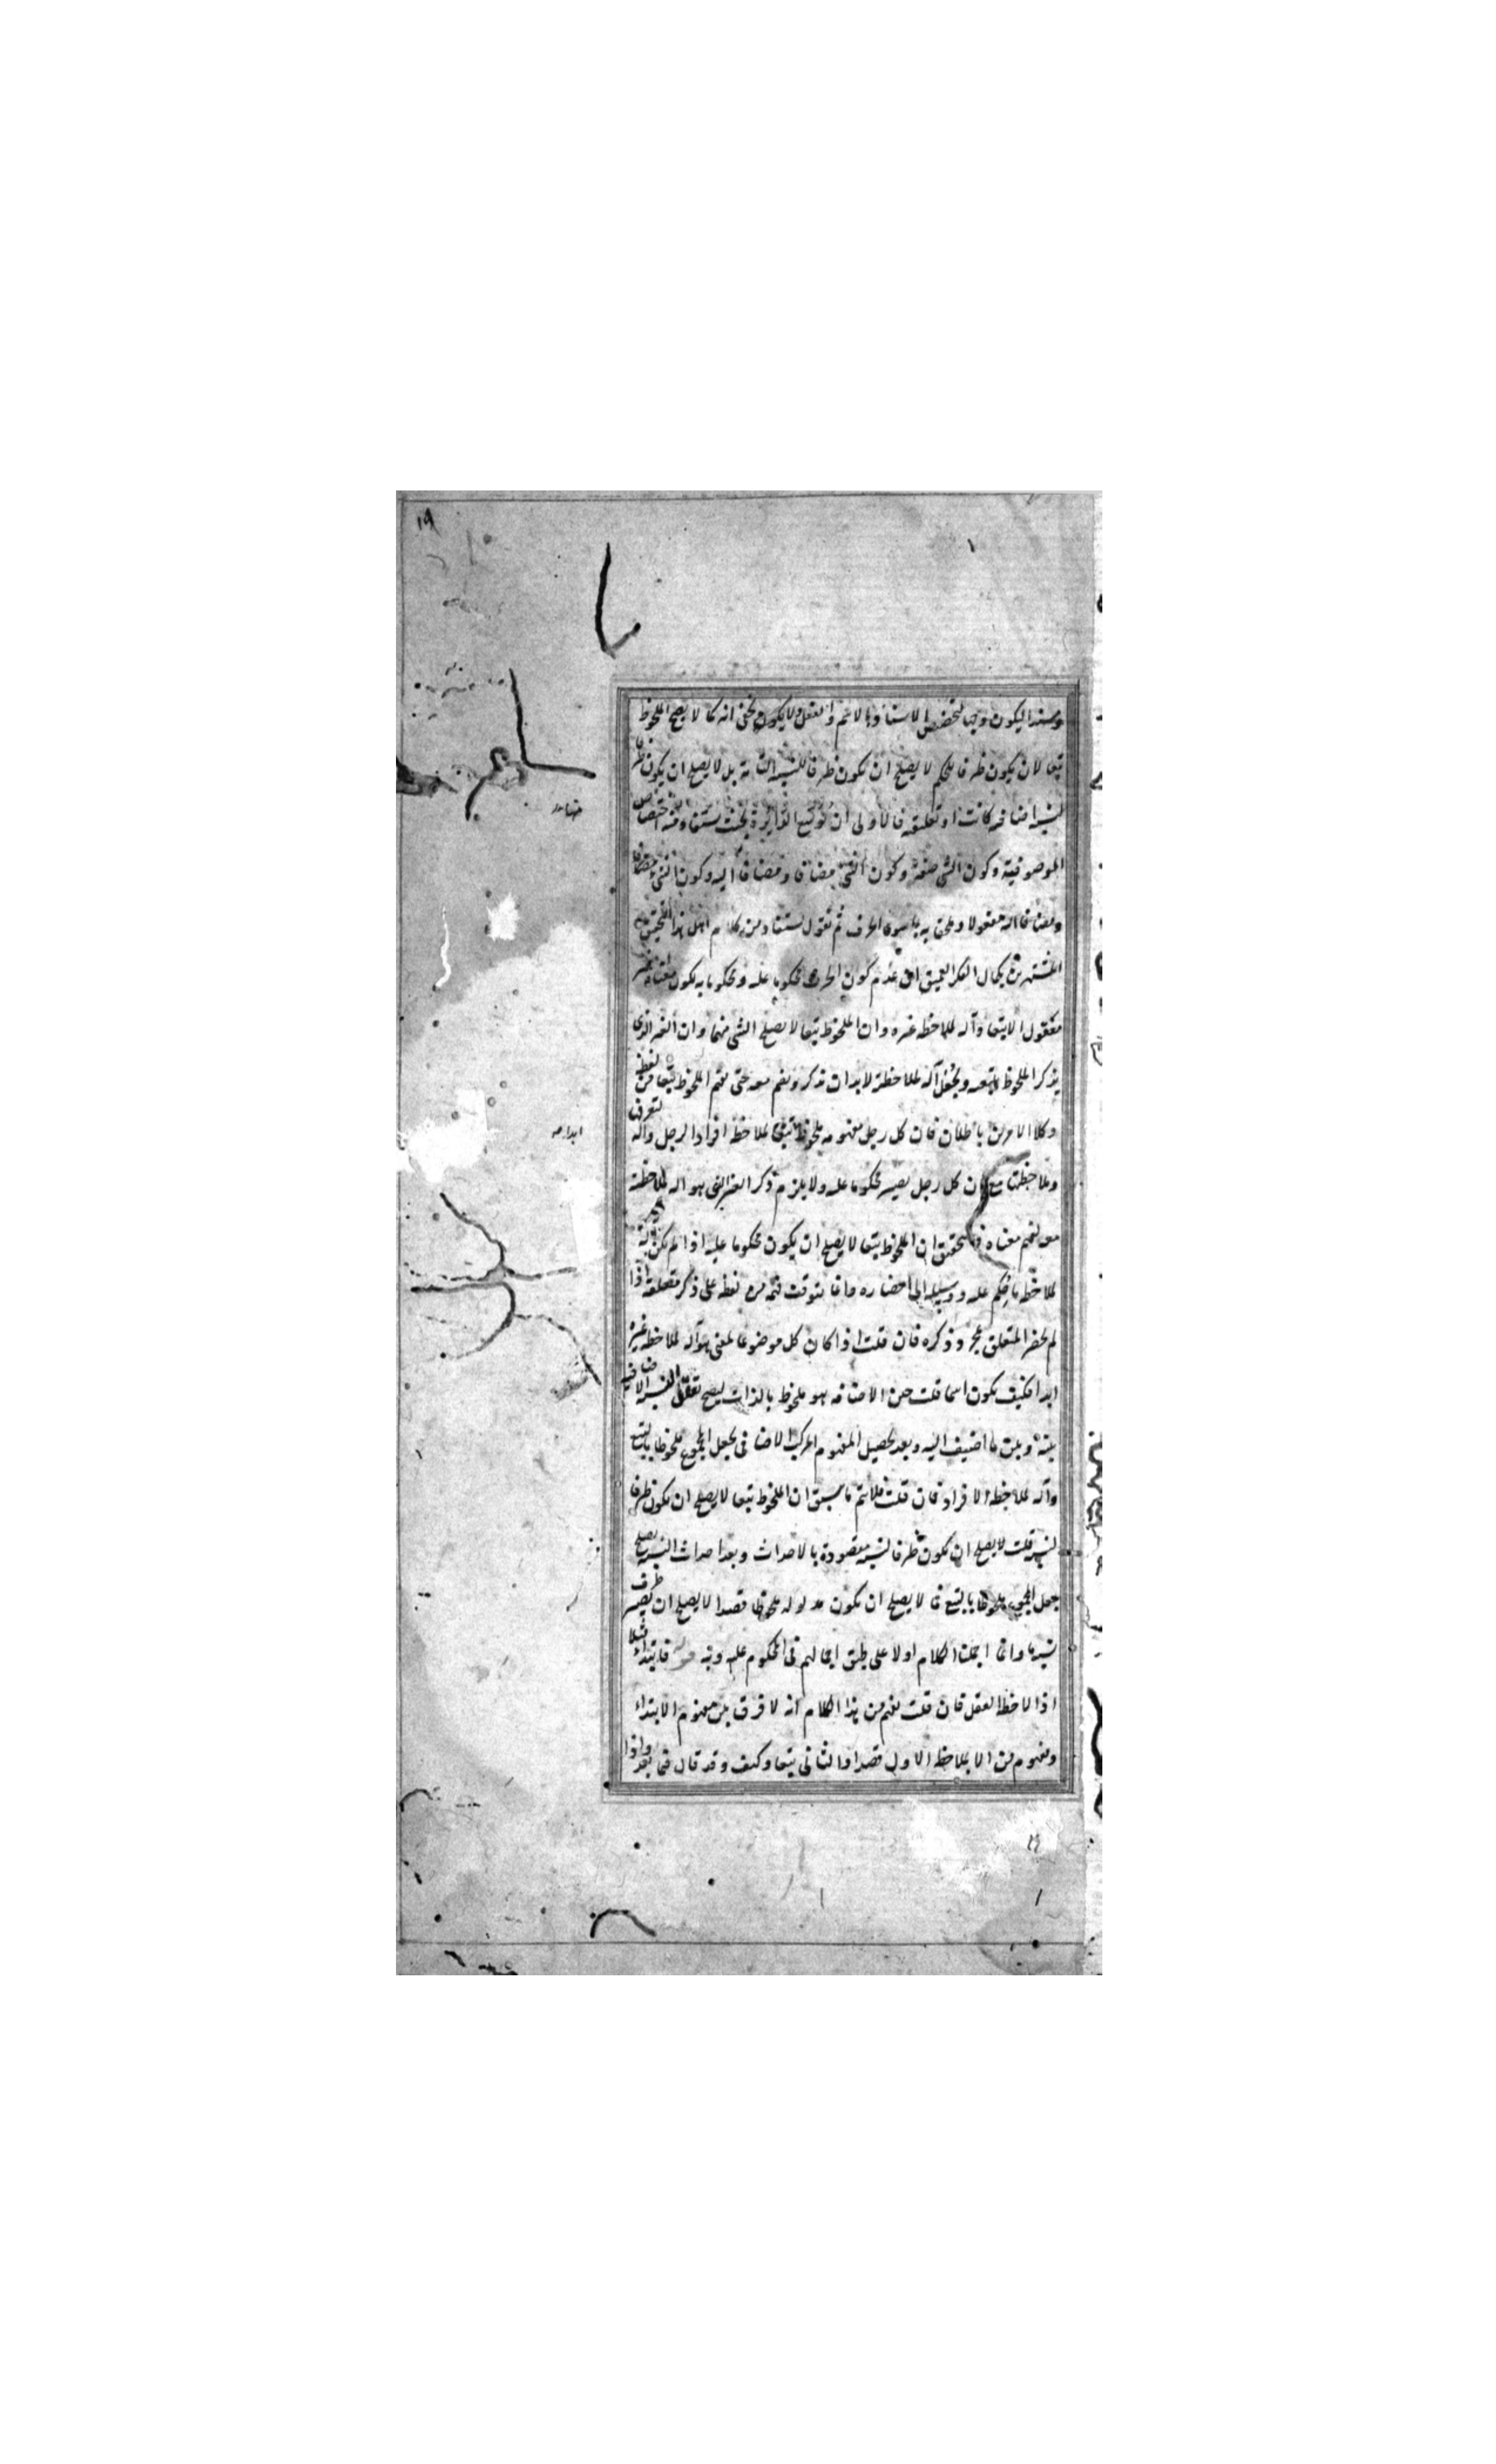 ١٩
وسندا ليكون وجها لتخصيص الاسناد بالاسم والفعل ولا يكون لا يخفى انه كما لا يصح الملحوظ
تبعا لان يكون طرفا للحكم لا يصلح ان يكون طرفا للنسبة التامة بل لا يصلح ان يكون طرفا
لنسبة اضافية كانت او تعلقية فالاولى ان توسع الدائرة بحيث يستفاد منه اختصاص
الموصوفية وكون الشئ صفة وكون الشئ مضافا ومضافا اليه وكون الشئ
ومضافا اليه مفعولا وملحق به ما سوى الحرف ثم نقول يستفاد من كلام اهل هذا التحقيق
المشتهرين بكمال الفكر العميق ان عدم كون الحرف محكوما عليه ومحكوما به لكون معناه غير
معقول الا تبعا وآلة لملاحظة غيره وان الملحوظ تبعا لا يصلح لشئ منهما وان الغير الذى
يذكر الملحوظ بتبعه ويجعل آلة لملاحظته لا بد ان يذكر ويفهم معه حتى يفهم الملحوظ تبعا من لفظه
وكلا الامرين باطلان فان كل رجل مفهومه ملحوظ تبعا لملاحظة افراد الرجل وآلة لتعرفها
وملاحظتها مع ان كل رجل يصير محكوما عليه ولا يلزم ذكر الغير الذى هو آلة لملاحظته
معه ليفهم معناه فالتحقيق ان الملحوظ تبعا لا يصلح ان يكون محكوما عليه اذا لم يكن آلة
لملاحظة ما حكم عليه ووسيلة الى احضاره وانما يتوقف فهمه من لفظه على ذكر متعلقه اذا
لم يحضر المتعلق بمجرد ذكره فان قلت اذا كان كل موضوعا لمعنى هو آلة لملاحظة غيره
ابدا فكيف يكون اسما قلت حين الاضافة هو ملحوظ بالذات ليصح تعقل النسبة الاضافية
بينه وبين ما اضيف اليه وبعد تحصيل المفهوم المركب الاضافى يجعل المجموع ملحوظا بالتبع
وآلة لملاحظة الافراد فان قلت فلا يتم ما سبق ان الملحوظ تبعا لا يصلح ان يكون طرفا
لنسبة قلت لا يصلح ان يكون طرفا لنسبة مقصودة بالاحداث وبعد احداث النسبة يصلح
جعل المجموع ملحوظا بالتبع فما لا يصلح ان يكون مدلوله ملحوظا قصدا لا يصلح ان يصير طرف
نسبة ما وانما اجملنا الكلام اولا على طبق اجمالهم فى المحكوم عليه وبه قوله فالابتداء مثلا
اذا لاحظه العقل فان قلت يفهم من هذا الكلام انه لا فرق بين مفهوم الابتداء
ومفهوم من الا بملاحظة الاول قصدا والثانى تبعا وكيف وقد قال فيما بعد واذا